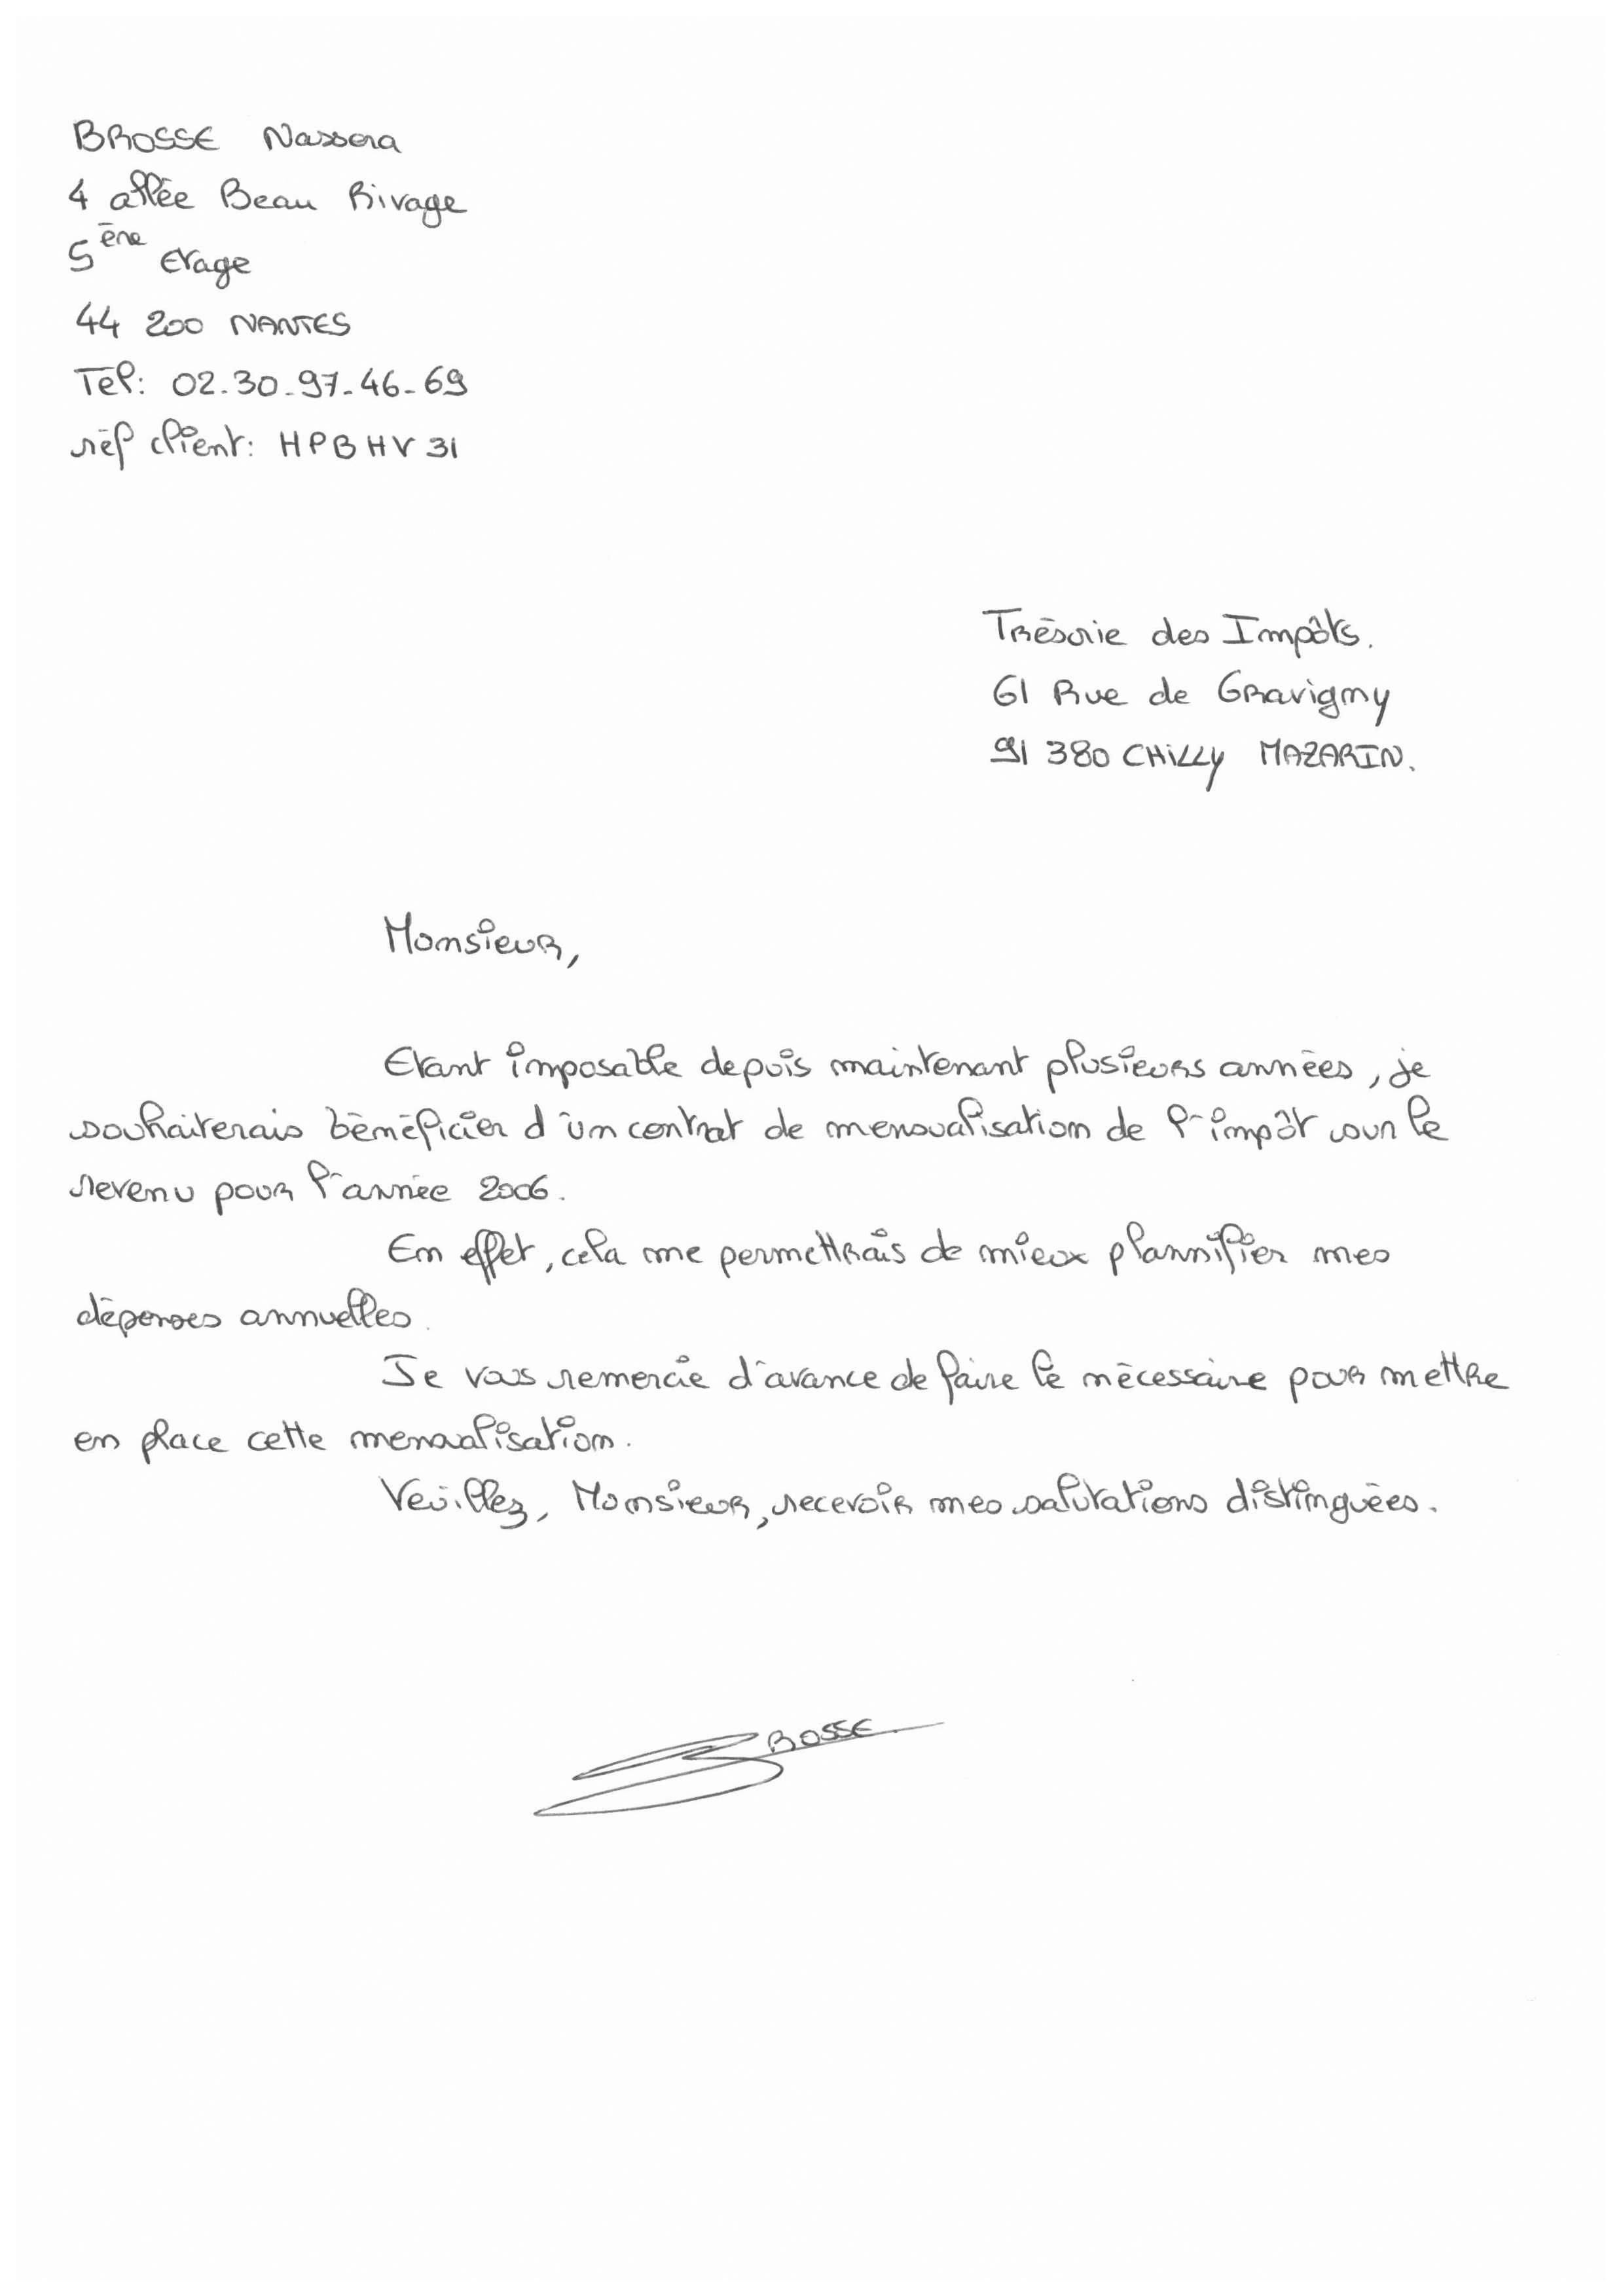 BROSSE Nassera
4 allée Beau Rivage
5ème Etage
44 200 NANTES
Tél: 02.30.97.46.69
réf client: HPBHV31
Trésorie des Impôts.
61 Rue de Gravigny
91 380 CHILLY MAZARIN.
Monsieur,
Etant imposable depuis maintenant plusieurs années, je
souhaiterais bénéficier d'un contrat de mensualisation de l'impôt sur le
revenu pour l'année 2006.
En effet, cela me permettrais de mieux plannifier mes
dépenses annuelles.
Je vous remercie d'avance de faire le nécessaire pour mettre
en place cette mensualisation.
Veuillez, Monsieur, recevoir mes salutations distinguées.
BROSSE